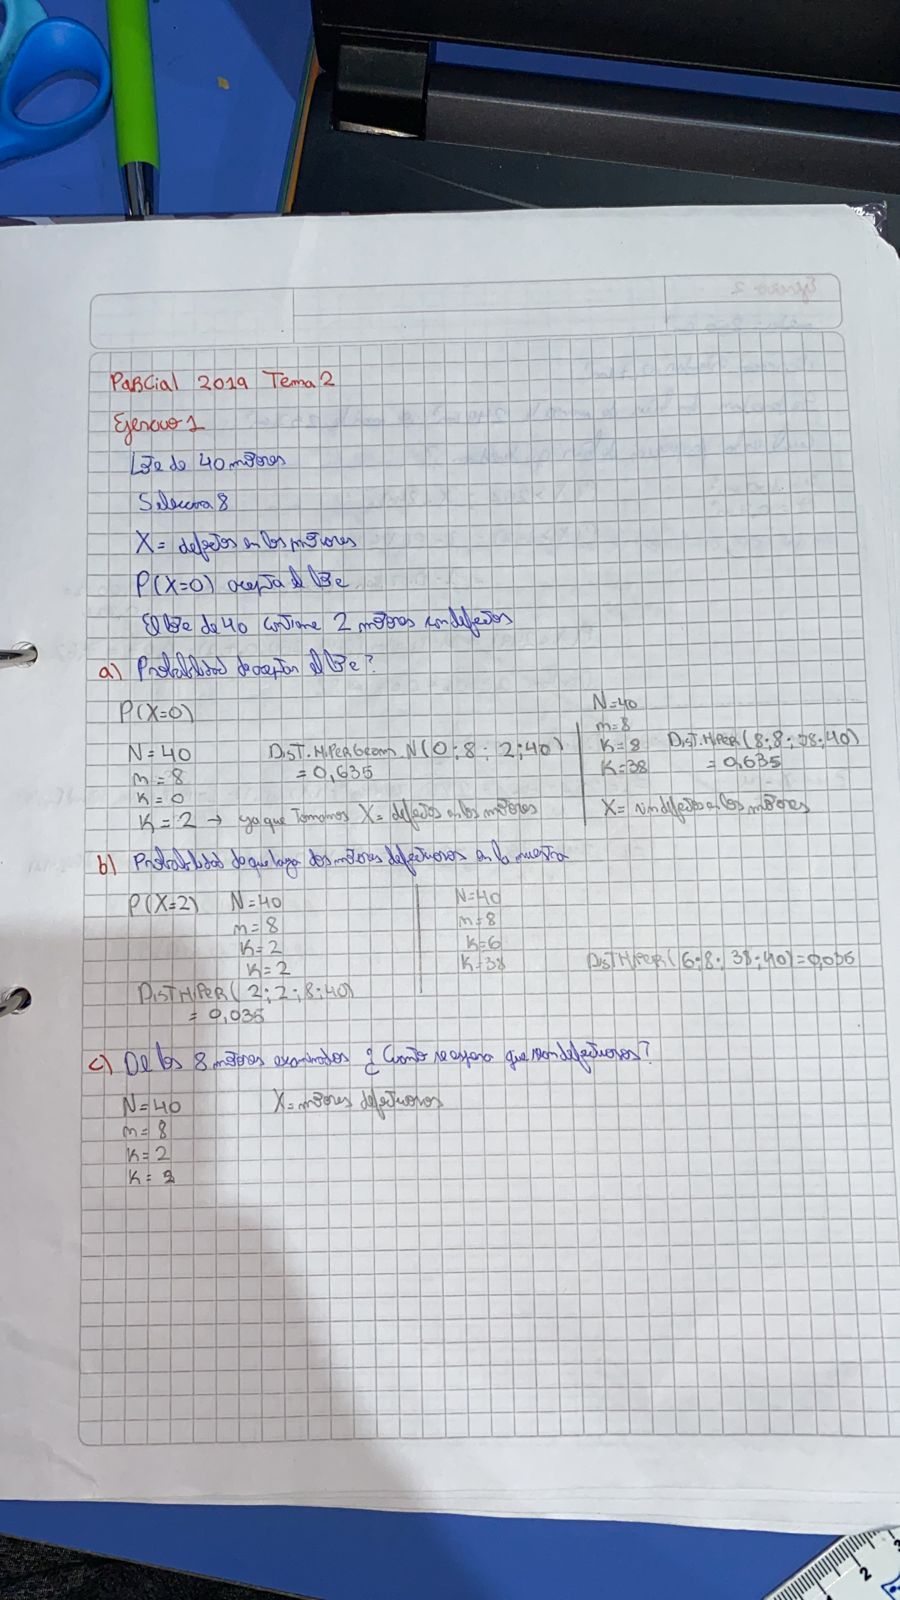 Parcial 2019 Tema 2
Ejercicio 1
Lote de 40 motores
Selecciona 8
X = defectos en los motores
P(X=0) acepta el lote
El lote de 40 contiene 2 motores con defectos
a) Probabilidad de aceptar el lote?
P(X=0)
N=40
m=8
K=0
K=2 → ya que tomamos X = defectos en los motores
DIST.HIPERGEOM.N(0;8;2;40)
=0,635
N=40
m=8
K=8
K=38
DIST.HIPER(8;8;38;40)
=0,635
X= sin defectos en los motores
b) Probabilidad de que haya dos motores defectuosos en la muestra
P(X=2) N=40
m=8
K=2
K=2
DISTHIPER(2;2;8;40)
=0,035
N=40
m=8
K=6
K=38
DISTHIPER(6;8;38;40)=0,035
c) De los 8 motores examinados ¿Cuánto se espera que sean defectuosos?
N=40 X=motores defectuosos
m=8
K=2
K=
2